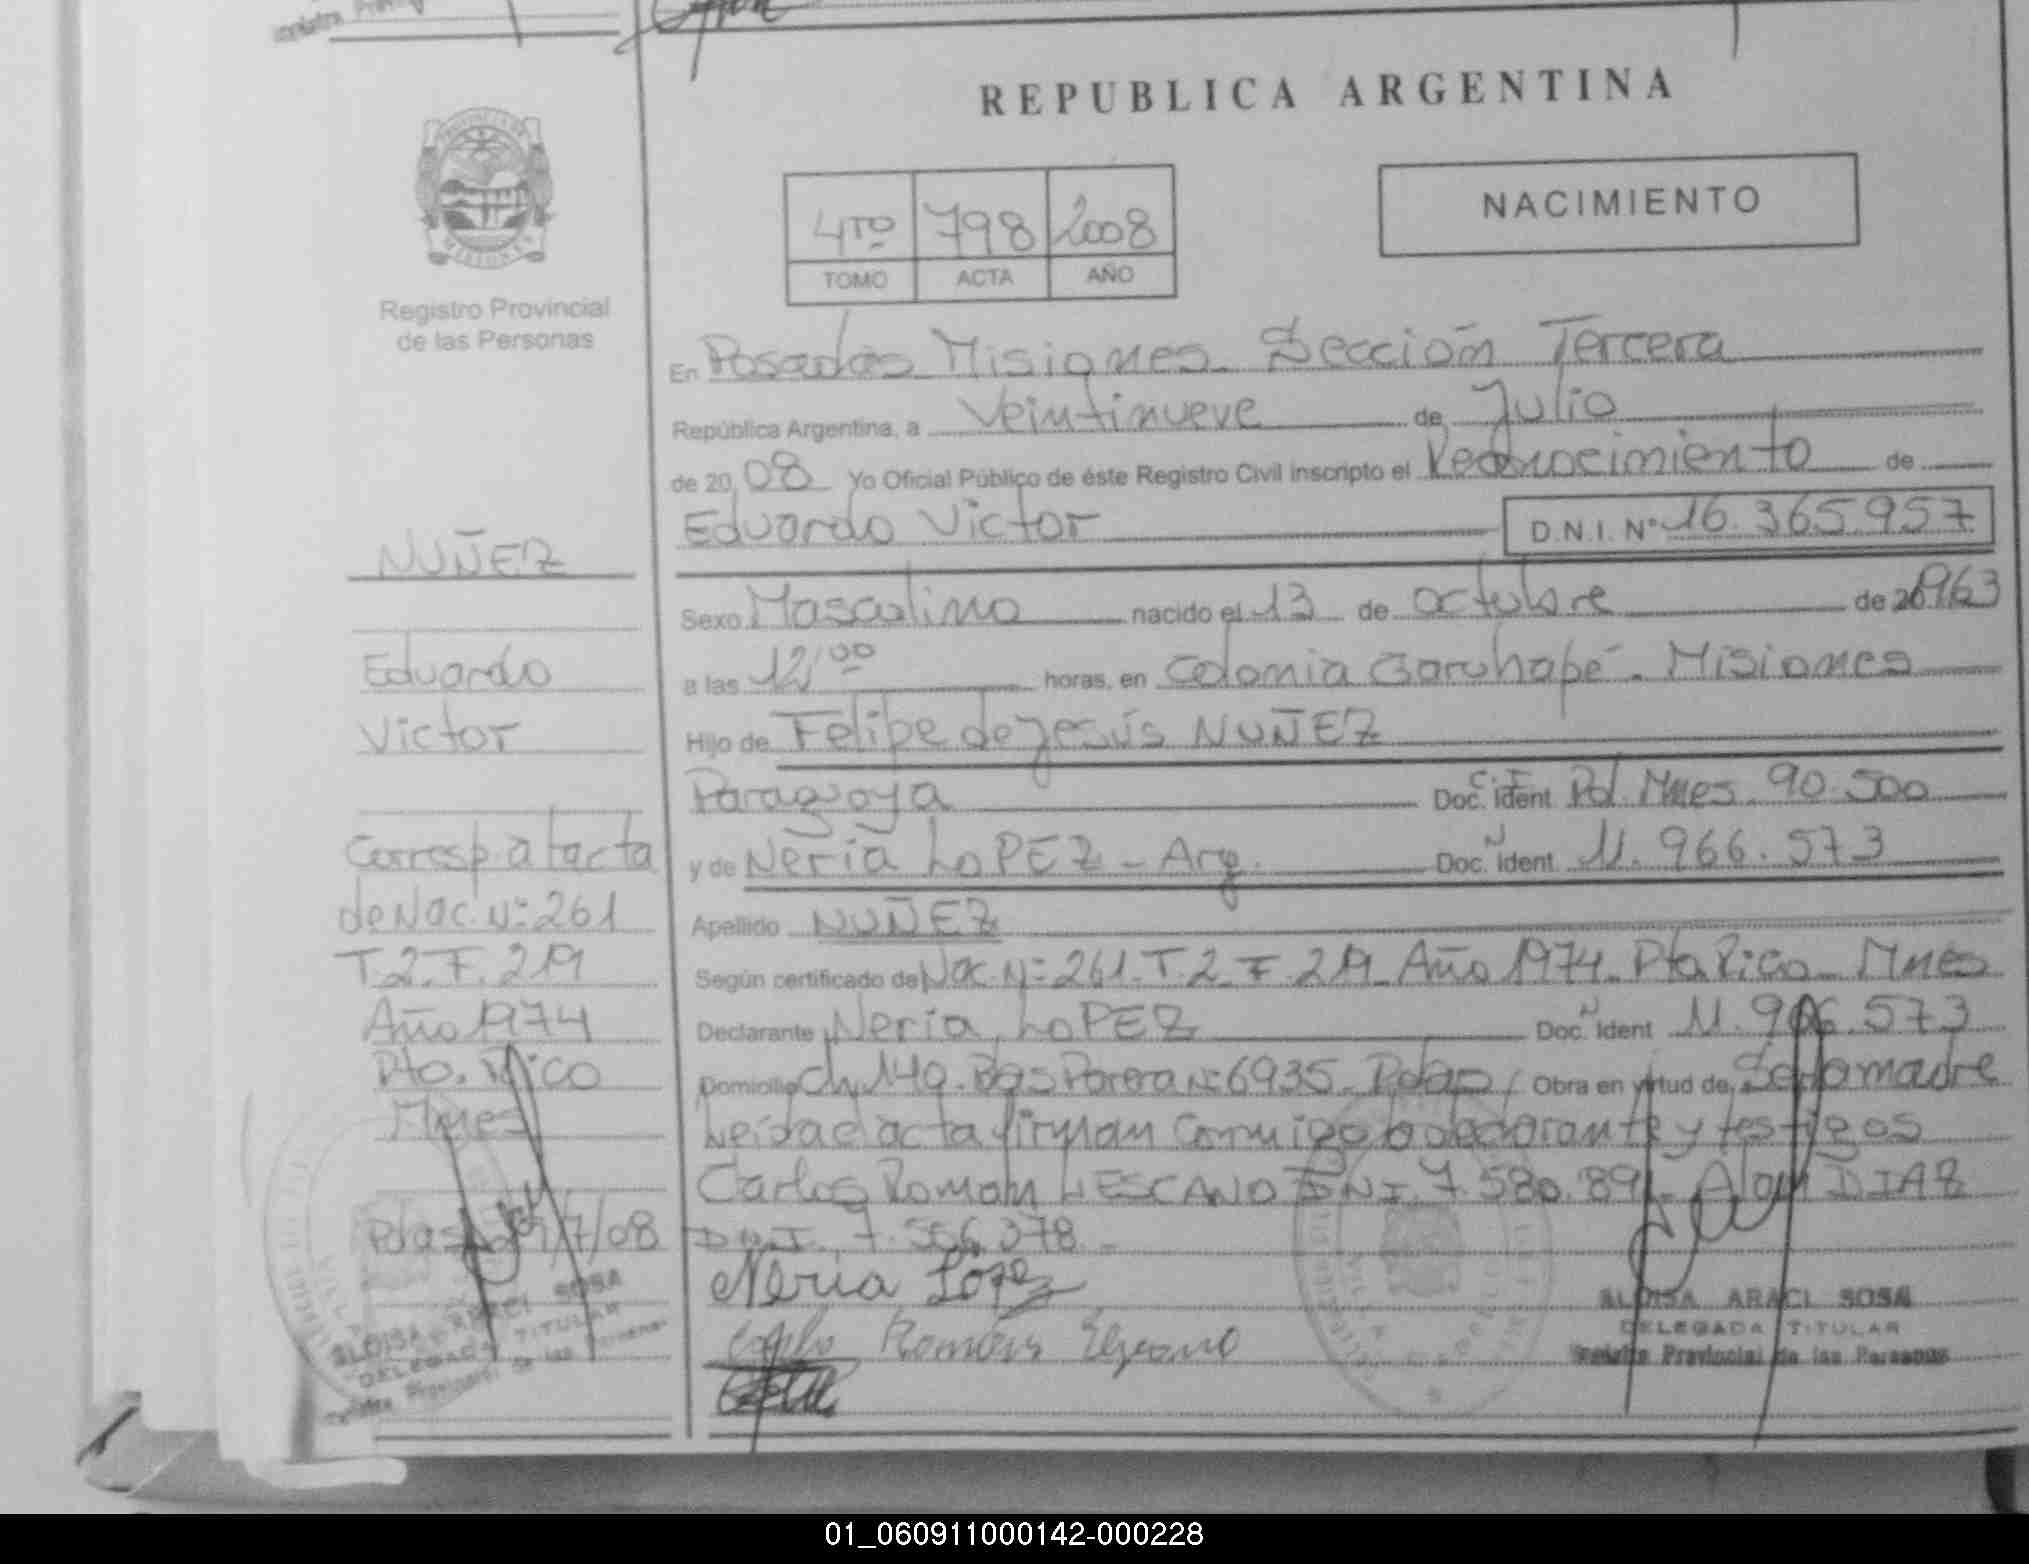 REPUBLICA ARGENTINA
PROVINCIA DE
MISIONES
Registro Provincial
de las Personas
4TO 798 2008
TOMO ACTA AÑO
NACIMIENTO
En Posadas Misiones. Sección Tercera
República Argentina, a Veintinueve de Julio
de 2008 Yo Oficial Público de éste Registro Civil inscripto el Reconocimiento de
Eduardo Victor D.N.I. Nº 16.365.957
Sexo Masculino nacido el 13 de octubre de 1963
a las 12,00 horas, en Colonia Garuhapé - Misiones
Hijo de Felipe de Jesús NUÑEZ
Paraguaya Doc. Ident C.I. Pol. Mnes. 90.500
y de Neria LOPEZ - Arg. Doc. Ident 11.966.573
Apellido NUÑEZ
Según certificado de Nac. Nº 261. T.2. F. 219. Año 1974. Pto Rico - Mnes
Declarante Neria LOPEZ Doc. Ident 11.966.573
Domicilio Ch. 149. Bº Nº 6935. Pdas / Obra en virtud de Ser la madre
Leída el acta firman conmigo la declarante y testigos
Carlos Roman LESCANO DNI. 7.580.891 DIAZ
D.N.I. 7.566.378 -
Neria López
Roman
ELOISA ARACI SOSA
DELEGADA TITULAR
Registro Provincial de las Personas
NUÑEZ
Eduardo
Victor
Corresp. a l'acta
de Nac. Nº 261
T.2. F. 219
Año 1974
Pto. Rico
Mnes
Pdas 29/7/08
ELOISA ARACI SOSA
DELEGADA TITULAR
Registro Provincial de las Personas
01_060911000142-000228